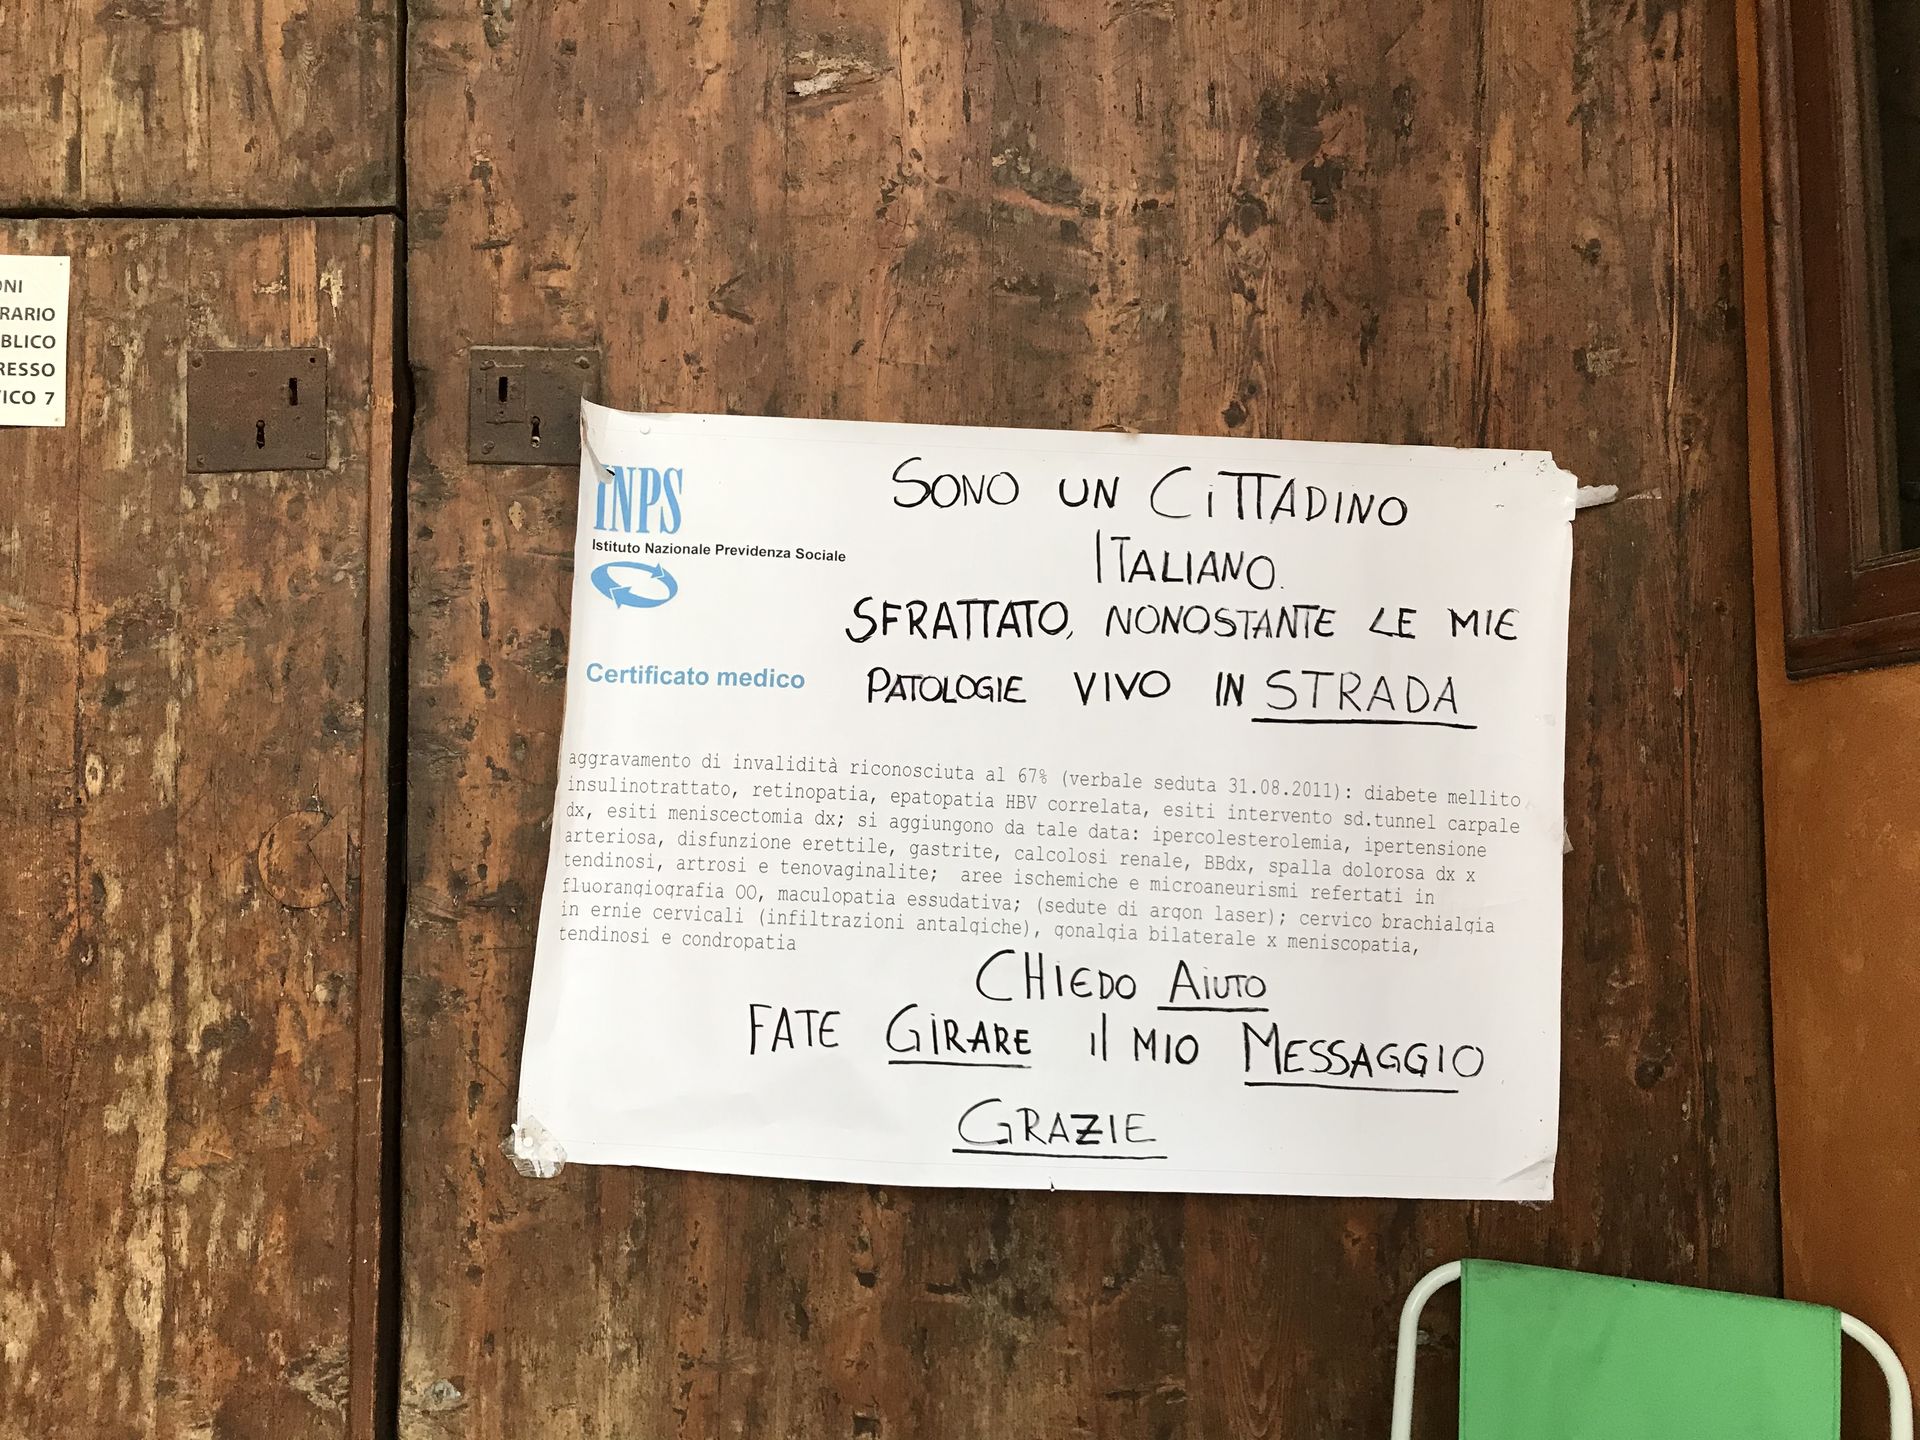 ONI
RARIO
BLICO
RESSO
VICO 7
INPS
Istituto Nazionale Previdenza Sociale
Certificato medico
SONO UN CiTTADINO
ITALIANO.
SFRATTATO, NONOSTANTE LE MIE
PATOLOGIE VIVO IN STRADA
aggravamento di invalidità riconosciuta al 67% (verbale seduta 31.08.2011): diabete mellito
insulinotrattato, retinopatia, epatopatia HBV correlata, esiti intervento sd.tunnel carpale
dx, esiti meniscectomia dx; si aggiungono da tale data: ipercolesterolemia, ipertensione
arteriosa, disfunzione erettile, gastrite, calcolosi renale, BBdx, spalla dolorosa dx x
tendinosi, artrosi e tenovaginalite; aree ischemiche e microaneurismi refertati in
fluorangiografia OO, maculopatia essudativa; (sedute di argon laser); cervico brachialgia
in ernie cervicali (infiltrazioni antalgiche), gonalgia bilaterale x meniscopatia,
tendinosi e condropatia
CHiEDO AiUTO
FATE GiRARE il MIO MESSAGGIO
GRAZIE